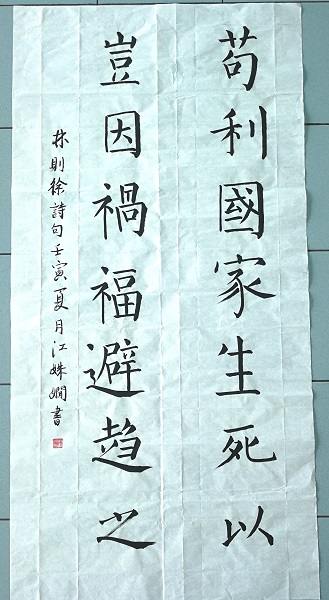 苟利國家生死以
豈因禍福避趨之
林則徐詩句壬寅夏月江姝嫺書